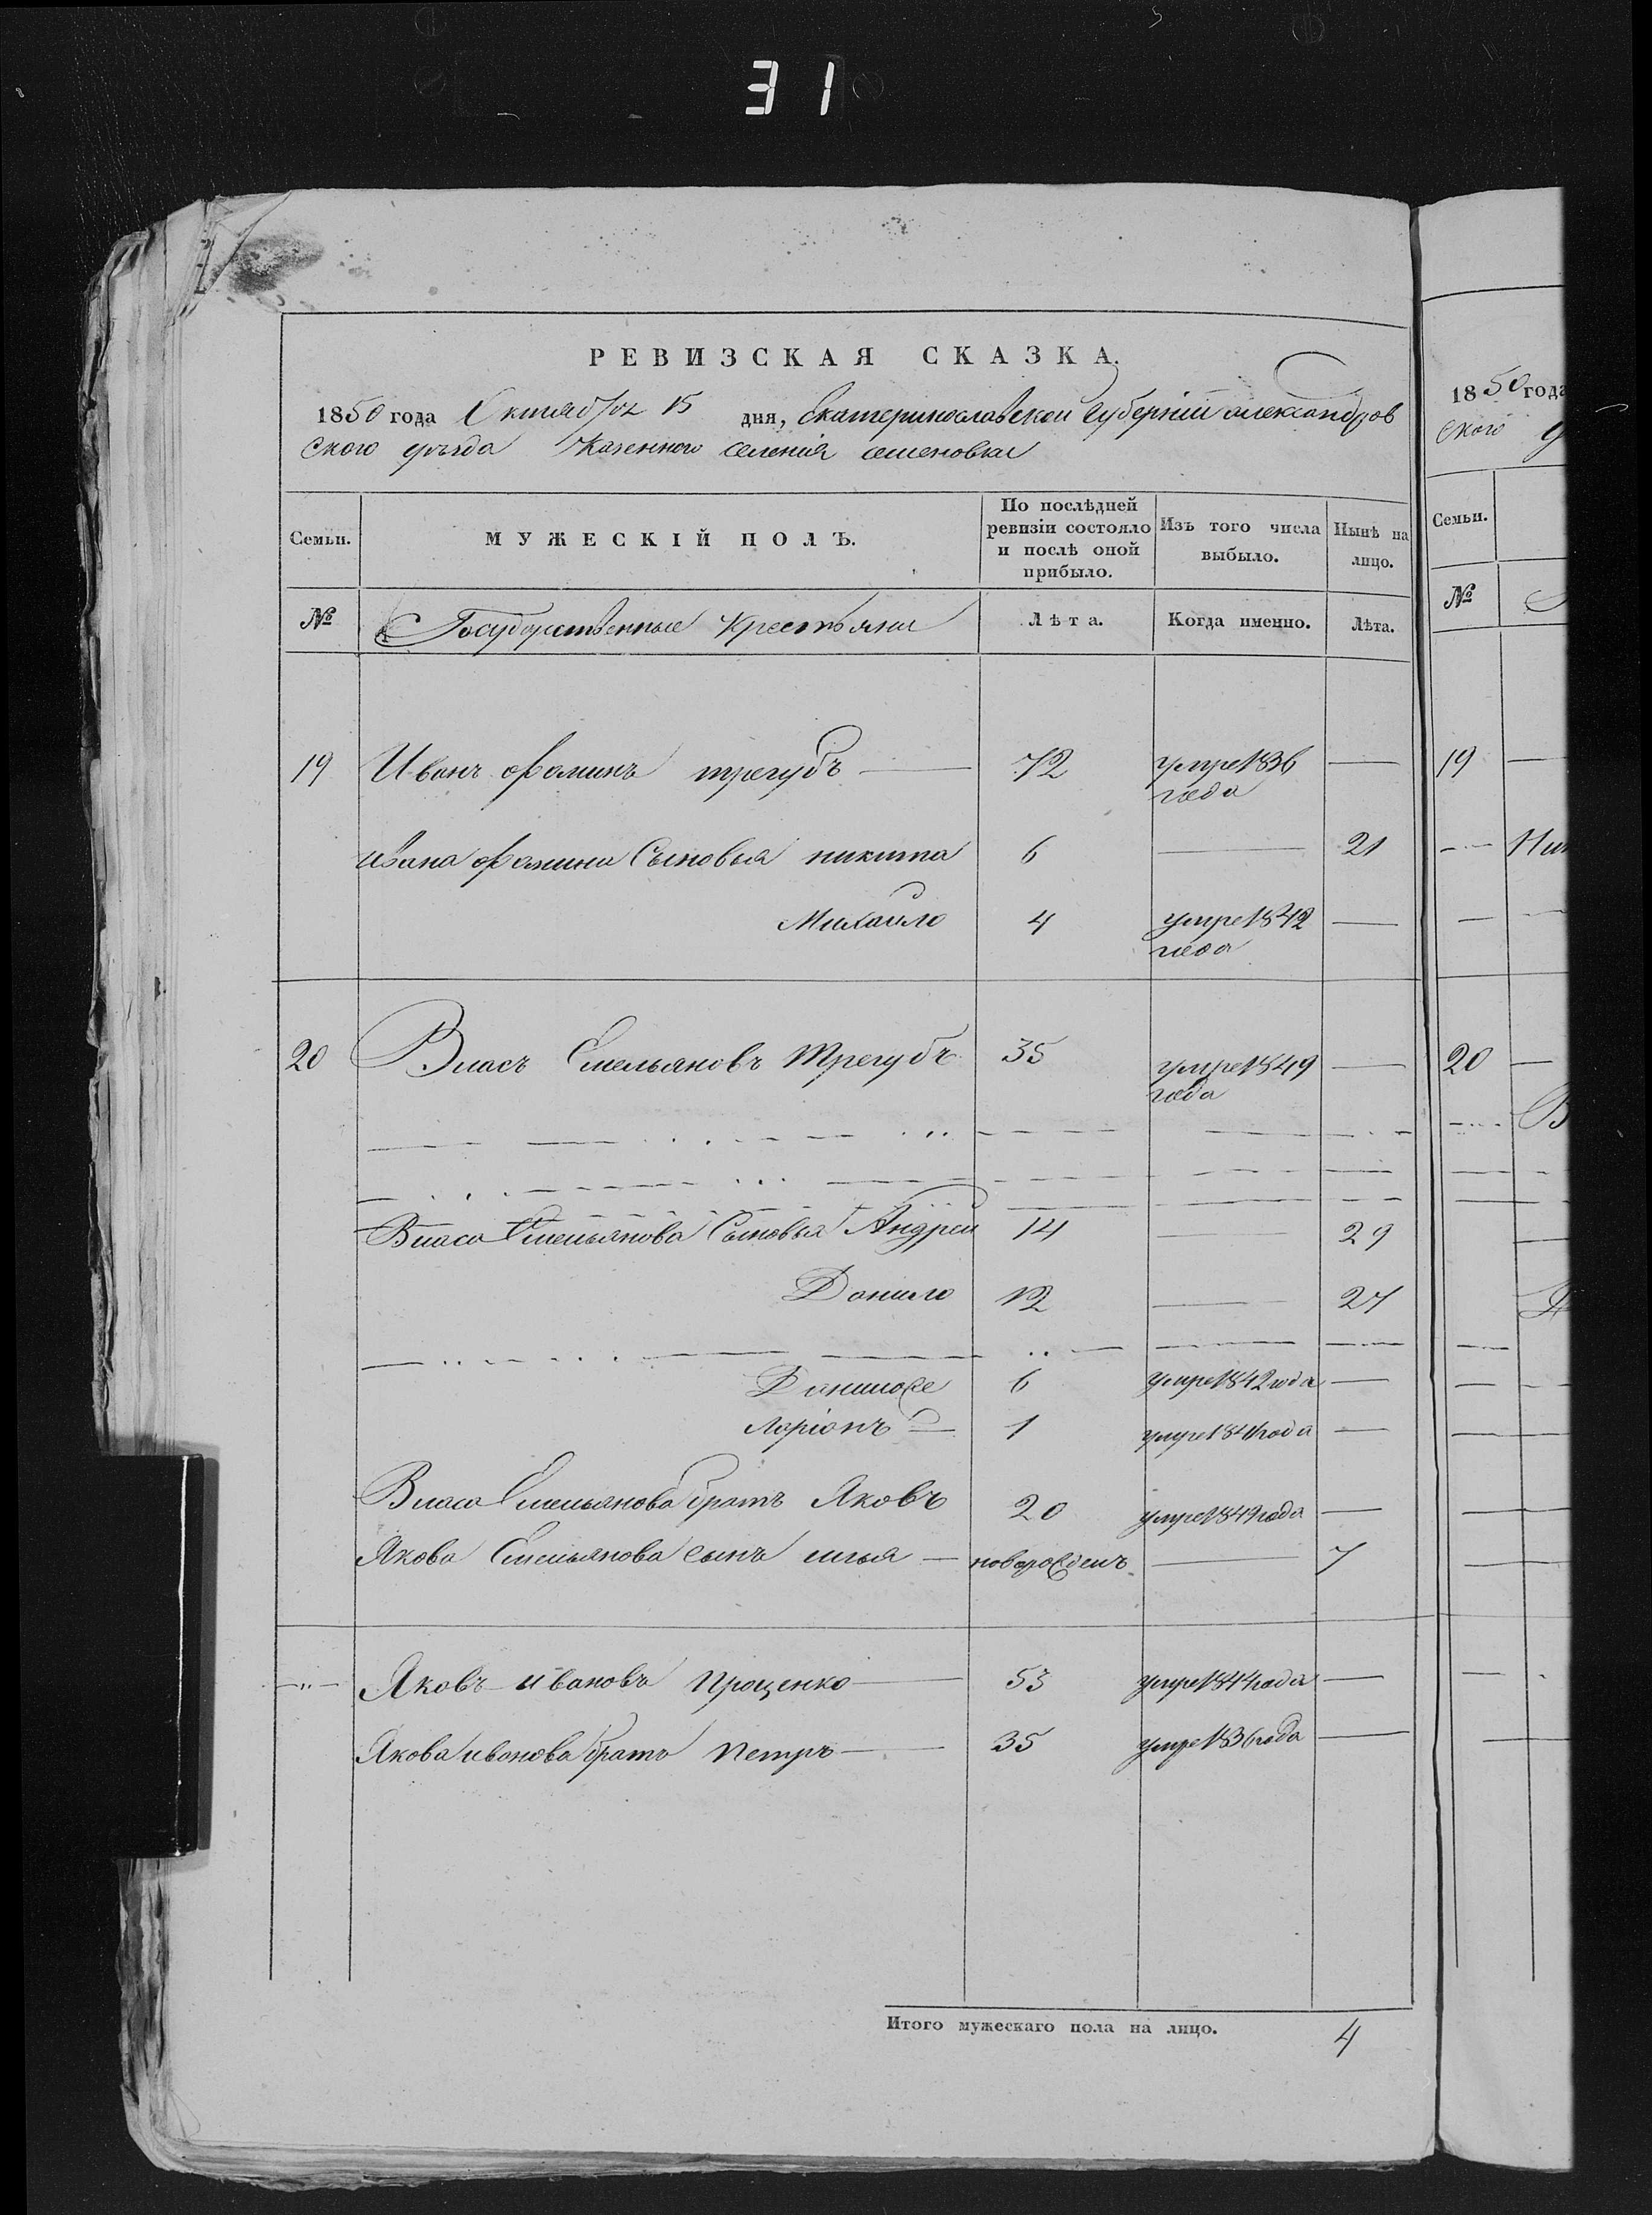 31
РЕВИЗСКАЯ СКАЗКА.
1850 года Октября 15 дня, Екатеринославской Губерніи александров
ского уѣзда Казенного селенія семеновки
Семьи. МУЖЕСКІЙ ПОЛЪ. По послѣдней ревизіи состояло и послѣ оной прибыло. Изъ того числа выбыло. Нынѣ на лицо.
№ Государственные Крестьяни Лѣта. Когда именно. Лѣта.
19 Иванъ Фоминъ трегубъ 72 умре 1836 года
ивана Фомина Сыновья никита 6 21
Михайло 4 умре 1842 года
20 Власъ Емельяновъ Трегубъ 35 умре 1849 года
Власа Емельянова Сыновья Андрей 14 29
Данило 12 27
Данило же 6 умре 1842 года
Ларіонъ 1 умре 1841 года
Власа Емельянова братъ Яковъ 20 умре 1849 года
Якова Емельянова сынъ илья новорожденъ 7
Яковъ ивановъ Проценко 53 умре 1844 года
Якова иванова братъ Петръ 35 умре 1836 года
Итого мужескаго пола на лицо. 4
1850 года
ского у
Семьи.
№
19
Ник
20
В